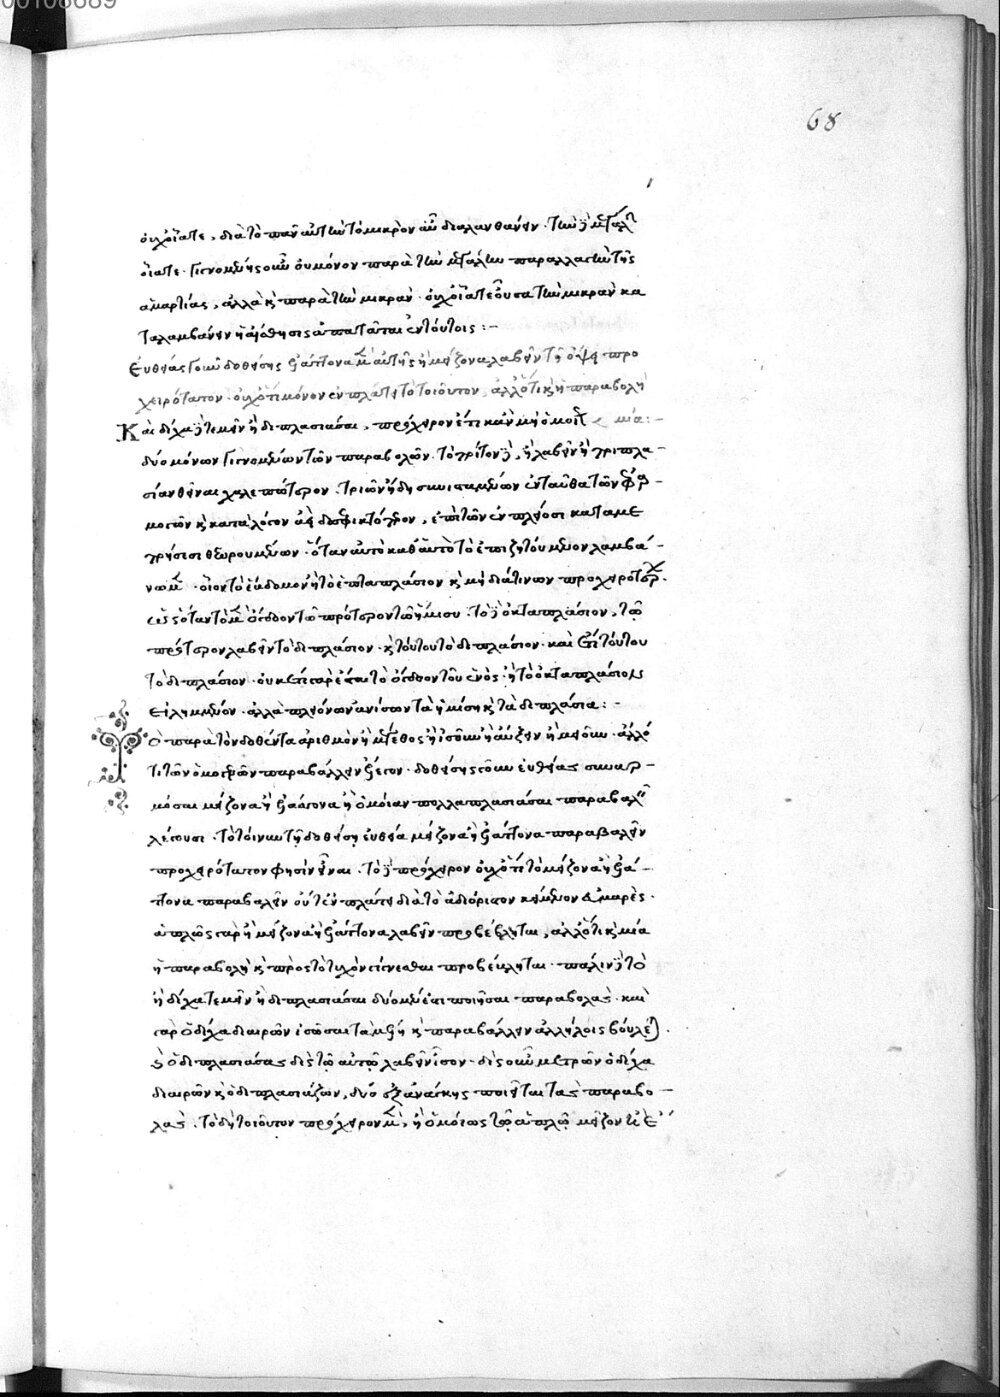 00108689
68
οὐχ οἷά τε, διὰ τὸ πᾶν αὐτὴν τὸ μικρὸν ἂν διαλανθάνειν. τὴν δὲ μεγάλην
οἷά τε. γινομένης οὖν οὐ μόνον παρὰ τὴν μεγάλην παραλλαγὴν τῆς
ἁμαρτίας, ἀλλὰ καὶ παρὰ τὴν μικράν. οὐχ οἷά τε οὖσα τὴν μικρὰν κα
ταλαμβάνειν ἡ αἴσθησις ἀπατᾶται ἐν τούτοις :-
Εὐθείας γοῦν δοθείσης ἐλάττονα μὲν αὐτῆς ἢ μείζονα λαβεῖν τῇ ὄψει προ
χειρότατον. οὐχ ὅτι μόνον ἐν πλάτει τὸ τοιοῦτον, ἀλλ' ὅτι καὶ ἡ παραβολὴ
μία :-
Καὶ δίχα δὲ τεμεῖν ἢ διπλασιάσαι, πρόχειρον ἔτι κἂν μὴ ὁμοίως
δύο μόνων γινομένων τῶν παραβολῶν. τὸ τρίτον δὲ, ἢ λαβεῖν ἢ τριπλα-
σίαν θεῖναι χαλεπώτερον. τριῶν ἤδη συνισταμένων ἐνταῦθα τῶν ἐφαρ-
μογῶν καὶ κατὰ λόγον ἀεὶ δυσεφικτότερον, ἐπὶ τῶν ἐν πλείοσι καταμε
τρήσεσι θεωρουμένων. ὅταν αὐτὸ καθ' αὑτὸ τὸ ἐπιζητούμενον λαμβά-
νωμεν. οἷον τὸ ἕβδομον ἢ τὸ ἑπταπλάσιον καὶ μὴ διά τινων προχειροτέρων.
ὅταν τὸ μὲν ὄγδοον τῷ πρότερον τῷ ἥμισυ. τὸ δὲ ὀκταπλάσιον, τῷ
πρότερον λαβεῖν τὸ διπλάσιον. καὶ τούτου τὸ διπλάσιον. καὶ ἔτι τούτου
τὸ διπλάσιον. οὐκέτι γὰρ ἔσται τὸ ὄγδοον τοῦ ἑνὸς. ἢ τὸ ὀκταπλάσιον
εἰλημμένον. ἀλλὰ πλειόνων ἀνίσων τὰ ἡμίση καὶ τὰ διπλάσια :-
Ὁ παρὰ τὸν δοθέντα ἀριθμὸν ἢ μέγεθος ἢ ἰσοῦν ἢ αὔξειν ἢ μειοῦν. ἀλλό
τι τῶν ὁμογενῶν παραβάλλειν ἐστι. δοθείσης γοῦν εὐθείας συναρ-
μόσαι μείζονα ἢ ἐλάττονα ἢ ὁμοίαν πολλαπλασιάσαι παραβάλλειν
λέγουσι. τὸ τοίνυν τῇ δοθείσῃ εὐθείᾳ μείζονα ἢ ἐλάττονα παραβαλεῖν
προχειρότατον φησὶν εἶναι. τὸ δὲ πρόχειρον οὐχ ὅτι τὸ μείζονα ἢ ἐλά-
ττονα παραβαλεῖν οὐκ ἐν πλάτει διὰ τὸ ἀδιόριστον κείμενον εὐμαρὲς.
ἁπλῶς γὰρ ἢ μείζονα ἢ ἐλάττονα λαβεῖν προβέβληται, ἀλλ' ὅτι καὶ μία
ἡ παραβολὴ καὶ πρὸς τὸ τυχὸν γίνεσθαι προβέβληται. πάλιν δὲ τὸ
ἢ δίχα τεμεῖν ἢ διπλασιάσαι δύο μέν ἐστι ποιῆσαι παραβολὰς. καὶ
γὰρ ὁ δίχα διαιρῶν ἰσῶσαι τὰ μέρη καὶ παραβάλλειν ἀλλήλοις βούλεται.
καὶ ὁ διπλασιάσας δὶς τῷ αὐτῷ λαβεῖν ἴσον. δὶς οὖν μετρῶν ὁ δίχα
διαιρῶν καὶ ὁ διπλασιάζων, δύο ἐξ ἀνάγκης ποιεῖται τὰς παραβο-
λὰς. τὸ δὴ τοιοῦτον πρόχειρον μὲν, ἢ ὁμοίως τῷ ἁπλῷ μεῖζον